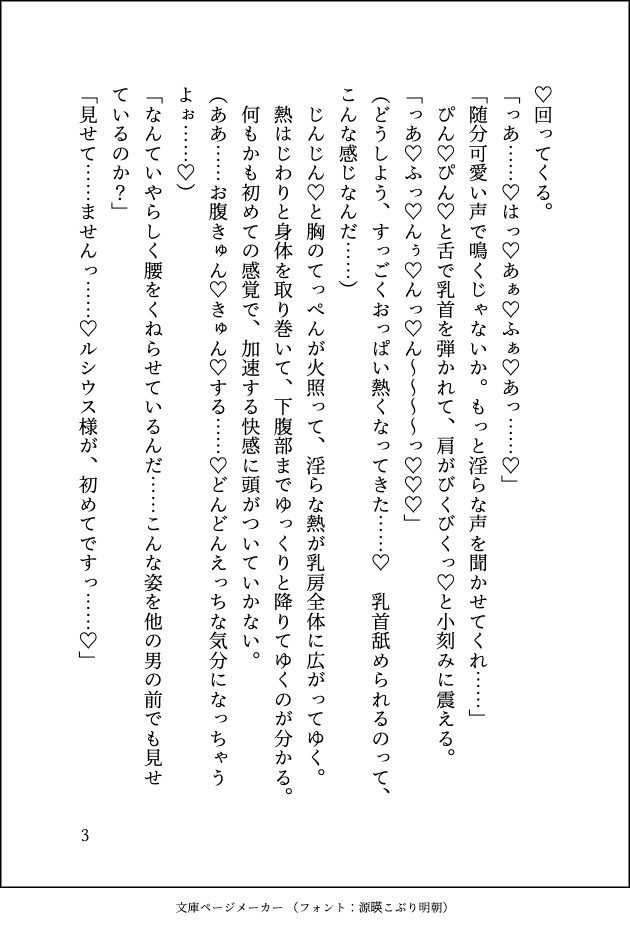 ♡回ってくる。
「っあ……♡はっ♡あぁ♡ふぁ♡あっ……♡」
「随分可愛い声で鳴くじゃないか。もっと淫らな声を聞かせてくれ……」
ぴん♡ぴん♡と舌で乳首を弾かれて、肩がびくびくっ♡と小刻みに震える。
「っあ♡ふっ♡んぅ♡んっ♡ん～～～～っ♡♡♡」
(どうしよう、すっごくおっぱい熱くなってきた……♡　乳首舐められるのって、
こんな感じなんだ……)
じんじん♡と胸のてっぺんが火照って、淫らな熱が乳房全体に広がってゆく。
熱はじわりと身体を取り巻いて、下腹部までゆっくりと降りてゆくのが分かる。
何もかも初めての感覚で、加速する快感に頭がついていかない。
(ああ……お腹きゅん♡きゅん♡する……♡どんどんえっちな気分になっちゃう
よぉ……♡)
「なんていやらしく腰をくねらせているんだ……こんな姿を他の男の前でも見せ
ているのか？」
「見せて……ませんっ……♡ルシウス様が、初めてですっ……♡」
3
文庫ページメーカー （フォント：源暎こぶり明朝）